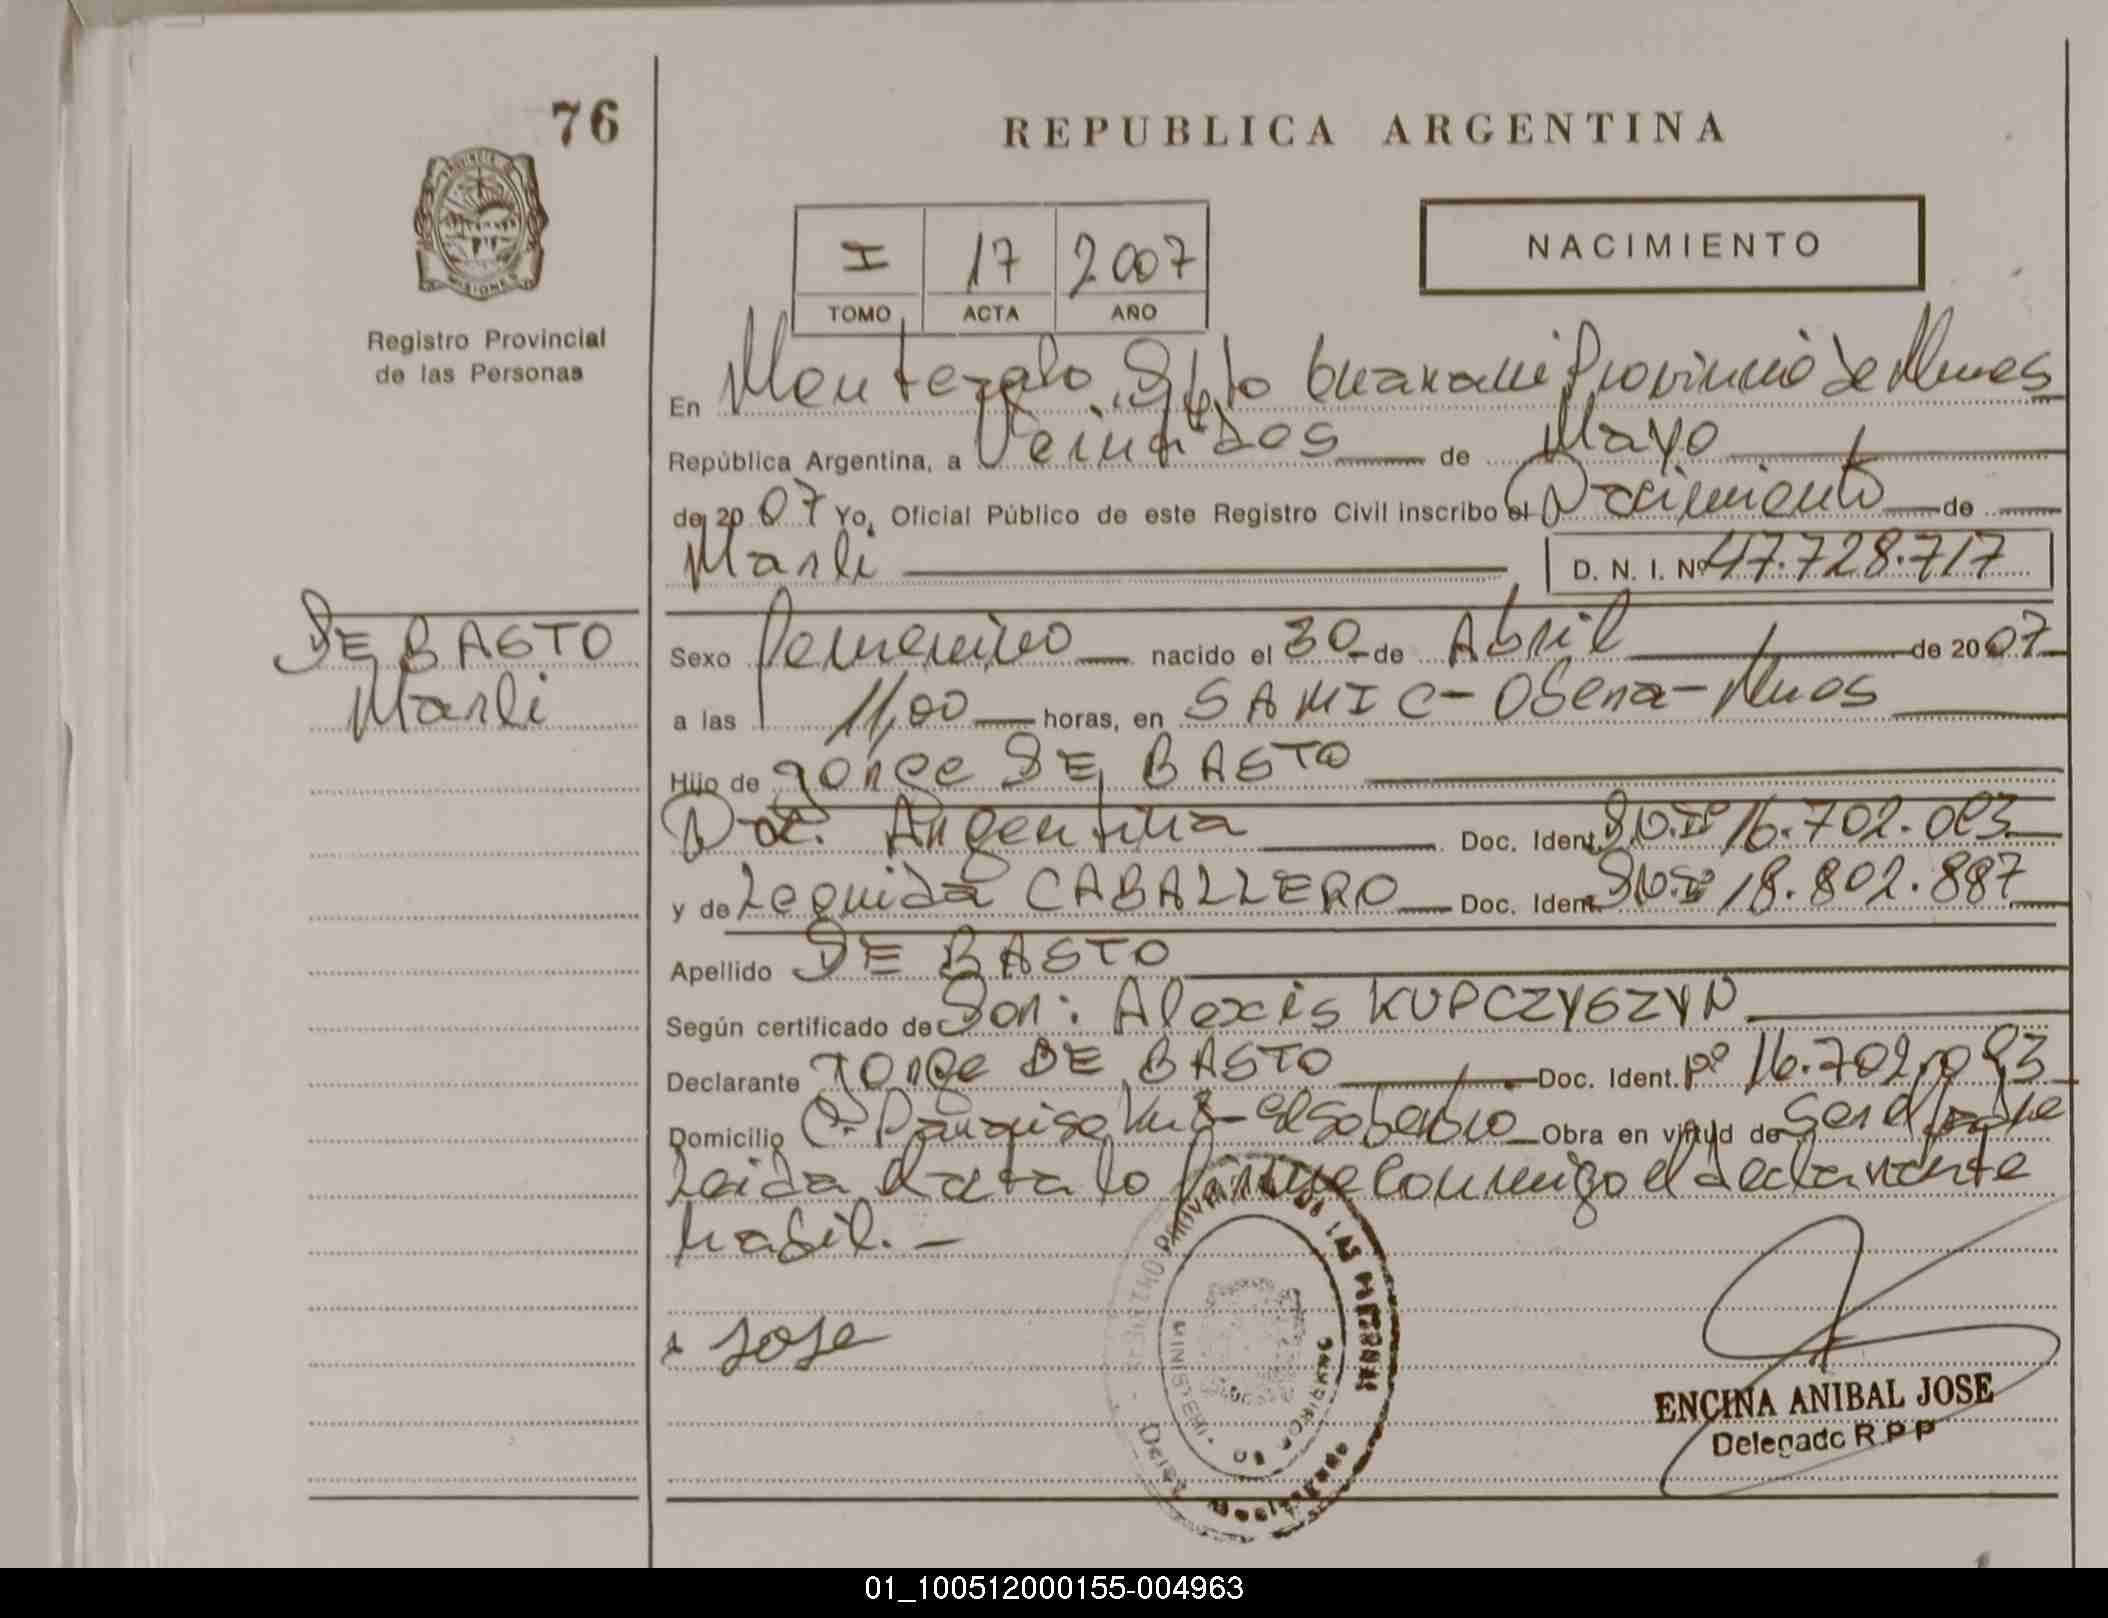 76
REPUBLICA ARGENTINA
I 17 2007
TOMO ACTA AÑO
NACIMIENTO
Registro Provincial
de las Personas
En Dpto Guarani Provincia de Mnes
República Argentina, a Veintidos de Mayo
de 2007 Yo, Oficial Público de este Registro Civil inscribo el Nacimiento de
Marli D. N. I. Nº 47.728.717
DE BASTO
Marli
Sexo Femenino nacido el 30 de Abril de 2007
a las 11,00 horas, en SAMIC - Obera - Mnes
Hijo de Jorge DE BASTO
Nac. Argentina Doc. Ident. D.N.I. 16.702.093
y de Leonida CABALLERO Doc. Ident. D.N.I. 18.802.887
Apellido DE BASTO
Según certificado de Dor: Alexis KUPCZYSZYN
Declarante Jorge DE BASTO Doc. Ident. Nº 16.702.093
Domicilio Cº Paraiso - El Soberbio Obra en virtud de ser el padre
Leida el acta la firma conmigo el declarante
habil. -
x Jose
ENCINA ANIBAL JOSE
Delegado R P P
01_100512000155-004963